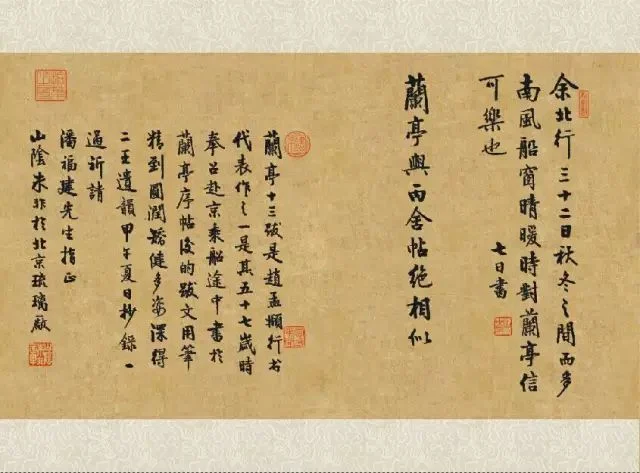 余北行三十二日秋冬之間而多
南風船窗晴暖時對蘭亭信
可樂也
七日書
蘭亭與丙舍帖絕相似
蘭亭十三跋是趙孟頫行书
代表作之一是其五十七歲時
奉召赴京乘船途中書於
蘭亭序帖後的跋文用筆
精到圓潤矯健多姿深得
二王遺韻甲午夏日抄錄一
過祈請
潘福建先生指正
山陰朱非於北京琉璃廠